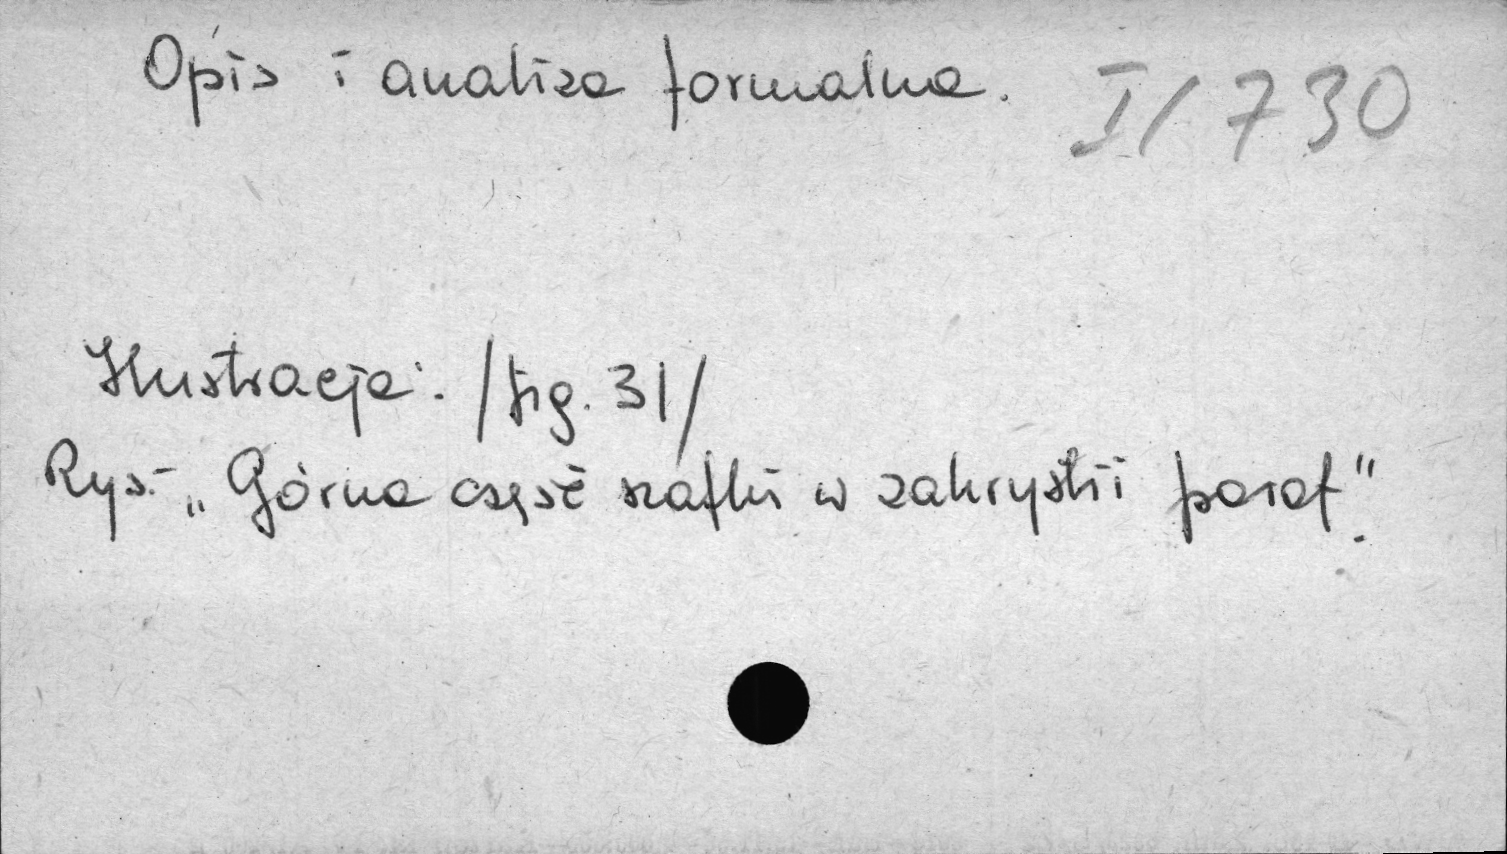 Opis i analiza formalna. I/730
Ilustracja: /fig. 31/
Rys. „Górna część szafki w zakrystii paraf."